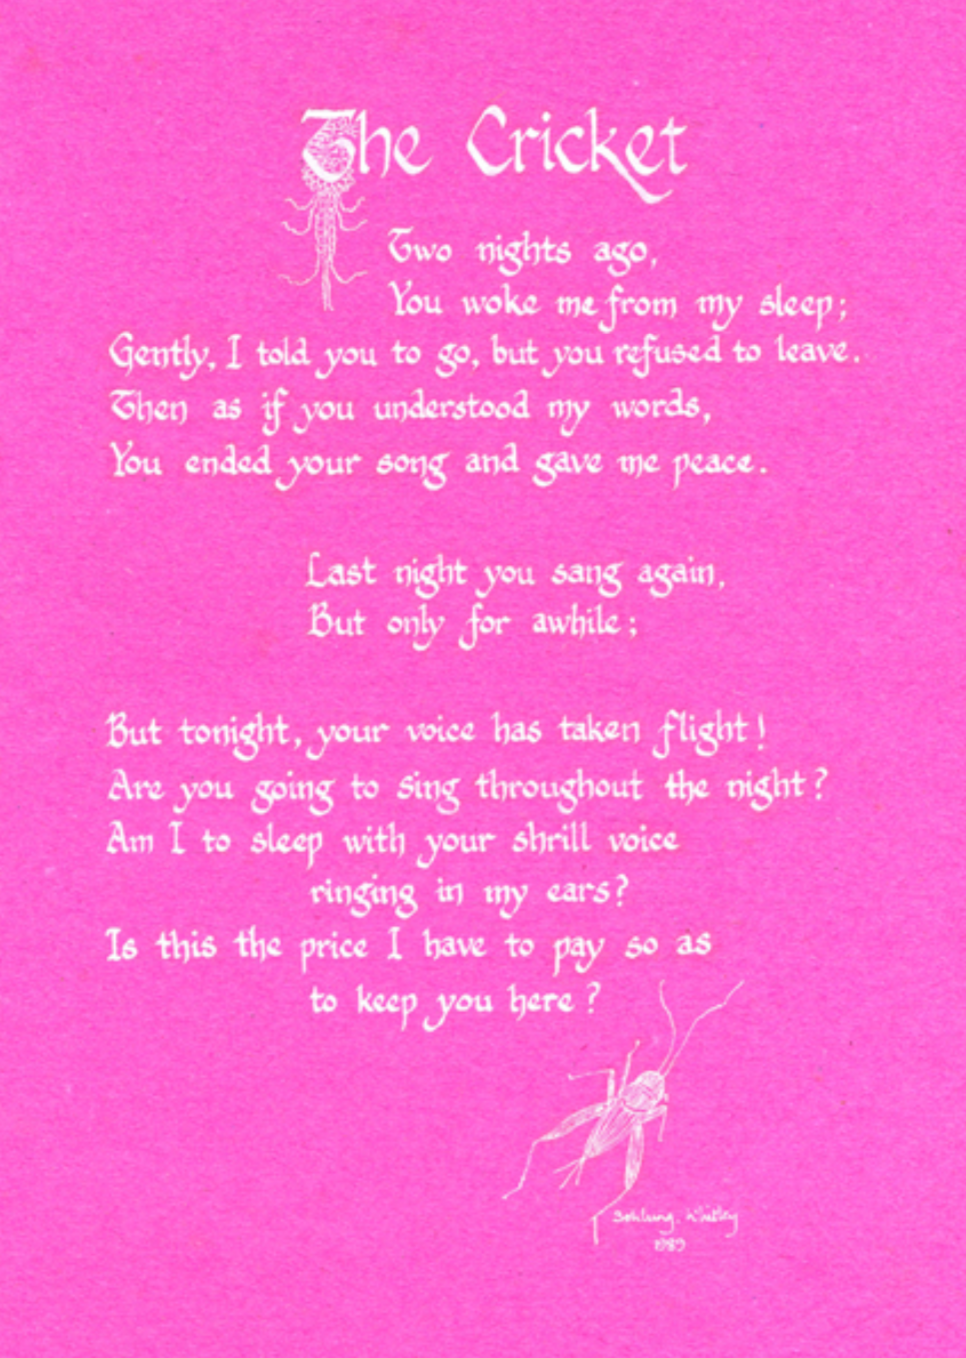 The Cricket
Two nights ago,
You woke me from my sleep;
Gently, I told you to go, but you refused to leave.
Then as if you understood my words,
You ended your song and gave me peace.
Last night you sang again,
But only for awhile;
But tonight, your voice has taken flight!
Are you going to sing throughout the night?
Am I to sleep with your shrill voice
ringing in my ears?
Is this the price I have to pay so as
to keep you here?
Whitley
1989